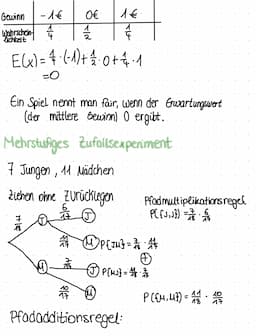 Gewinn -1€ 0€ 1€
Wahrschein-
lichkeit 1/4 1/2 1/4
E(x) = 1/4 · (-1) + 1/2 · 0 + 1/4 · 1
= 0
Ein Spiel nennt man fair, wenn der Erwartungswert
(der mittlere Gewinn) 0 ergibt.
Mehrstufiges Zufallsexperiment
7 Jungen, 11 Mädchen
Ziehen ohne Zurücklegen
Pfadmultiplikationsregel
P({J,J}) = 7/18 · 6/17
7/18 J 6/17 J
11/17 M P(JM) = 7/18 · 11/17
+
M 7/17 J
10/17 M P({M,M}) = 11/18 · 10/17
Pfadadditionsregel: